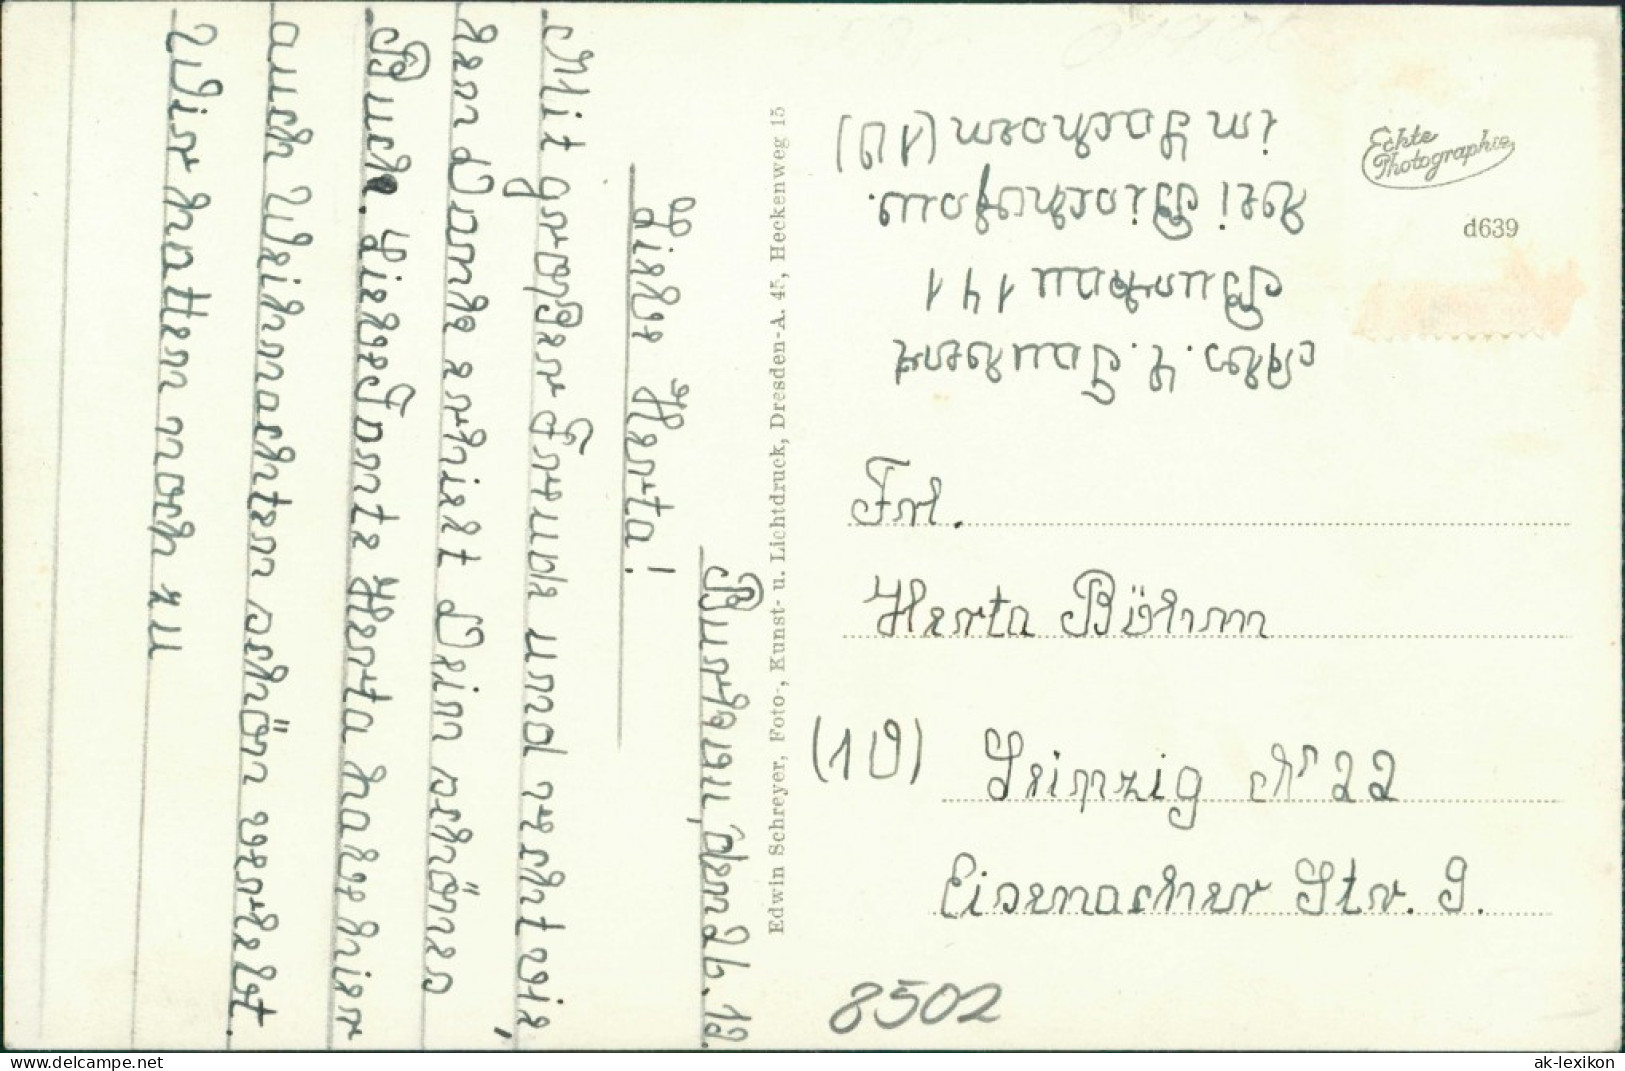 Burkau, den 26. 12.
Liebe Herta!
Mit großer Freude und recht vie-
len Danke erhielt Dein schönes
Buch. Liebe Tante Herta habe hier
auch Weihnachten schön verlebt.
Wir hatten noch zu
Edwin Schreyer, Foto-, Kunst- u. Lichtdruck, Dresden-A. 45, Heckenweg 15
Abs. L. Taubert
Burkau 141
bei Bischofsw.
in Sachsen (10)
Echte
Photographie
d639
Frl.
Herta Böhm
(10) Leipzig N 22
Eisenacher Str. 9.
8502
hippostcard.com
ak-lexikon